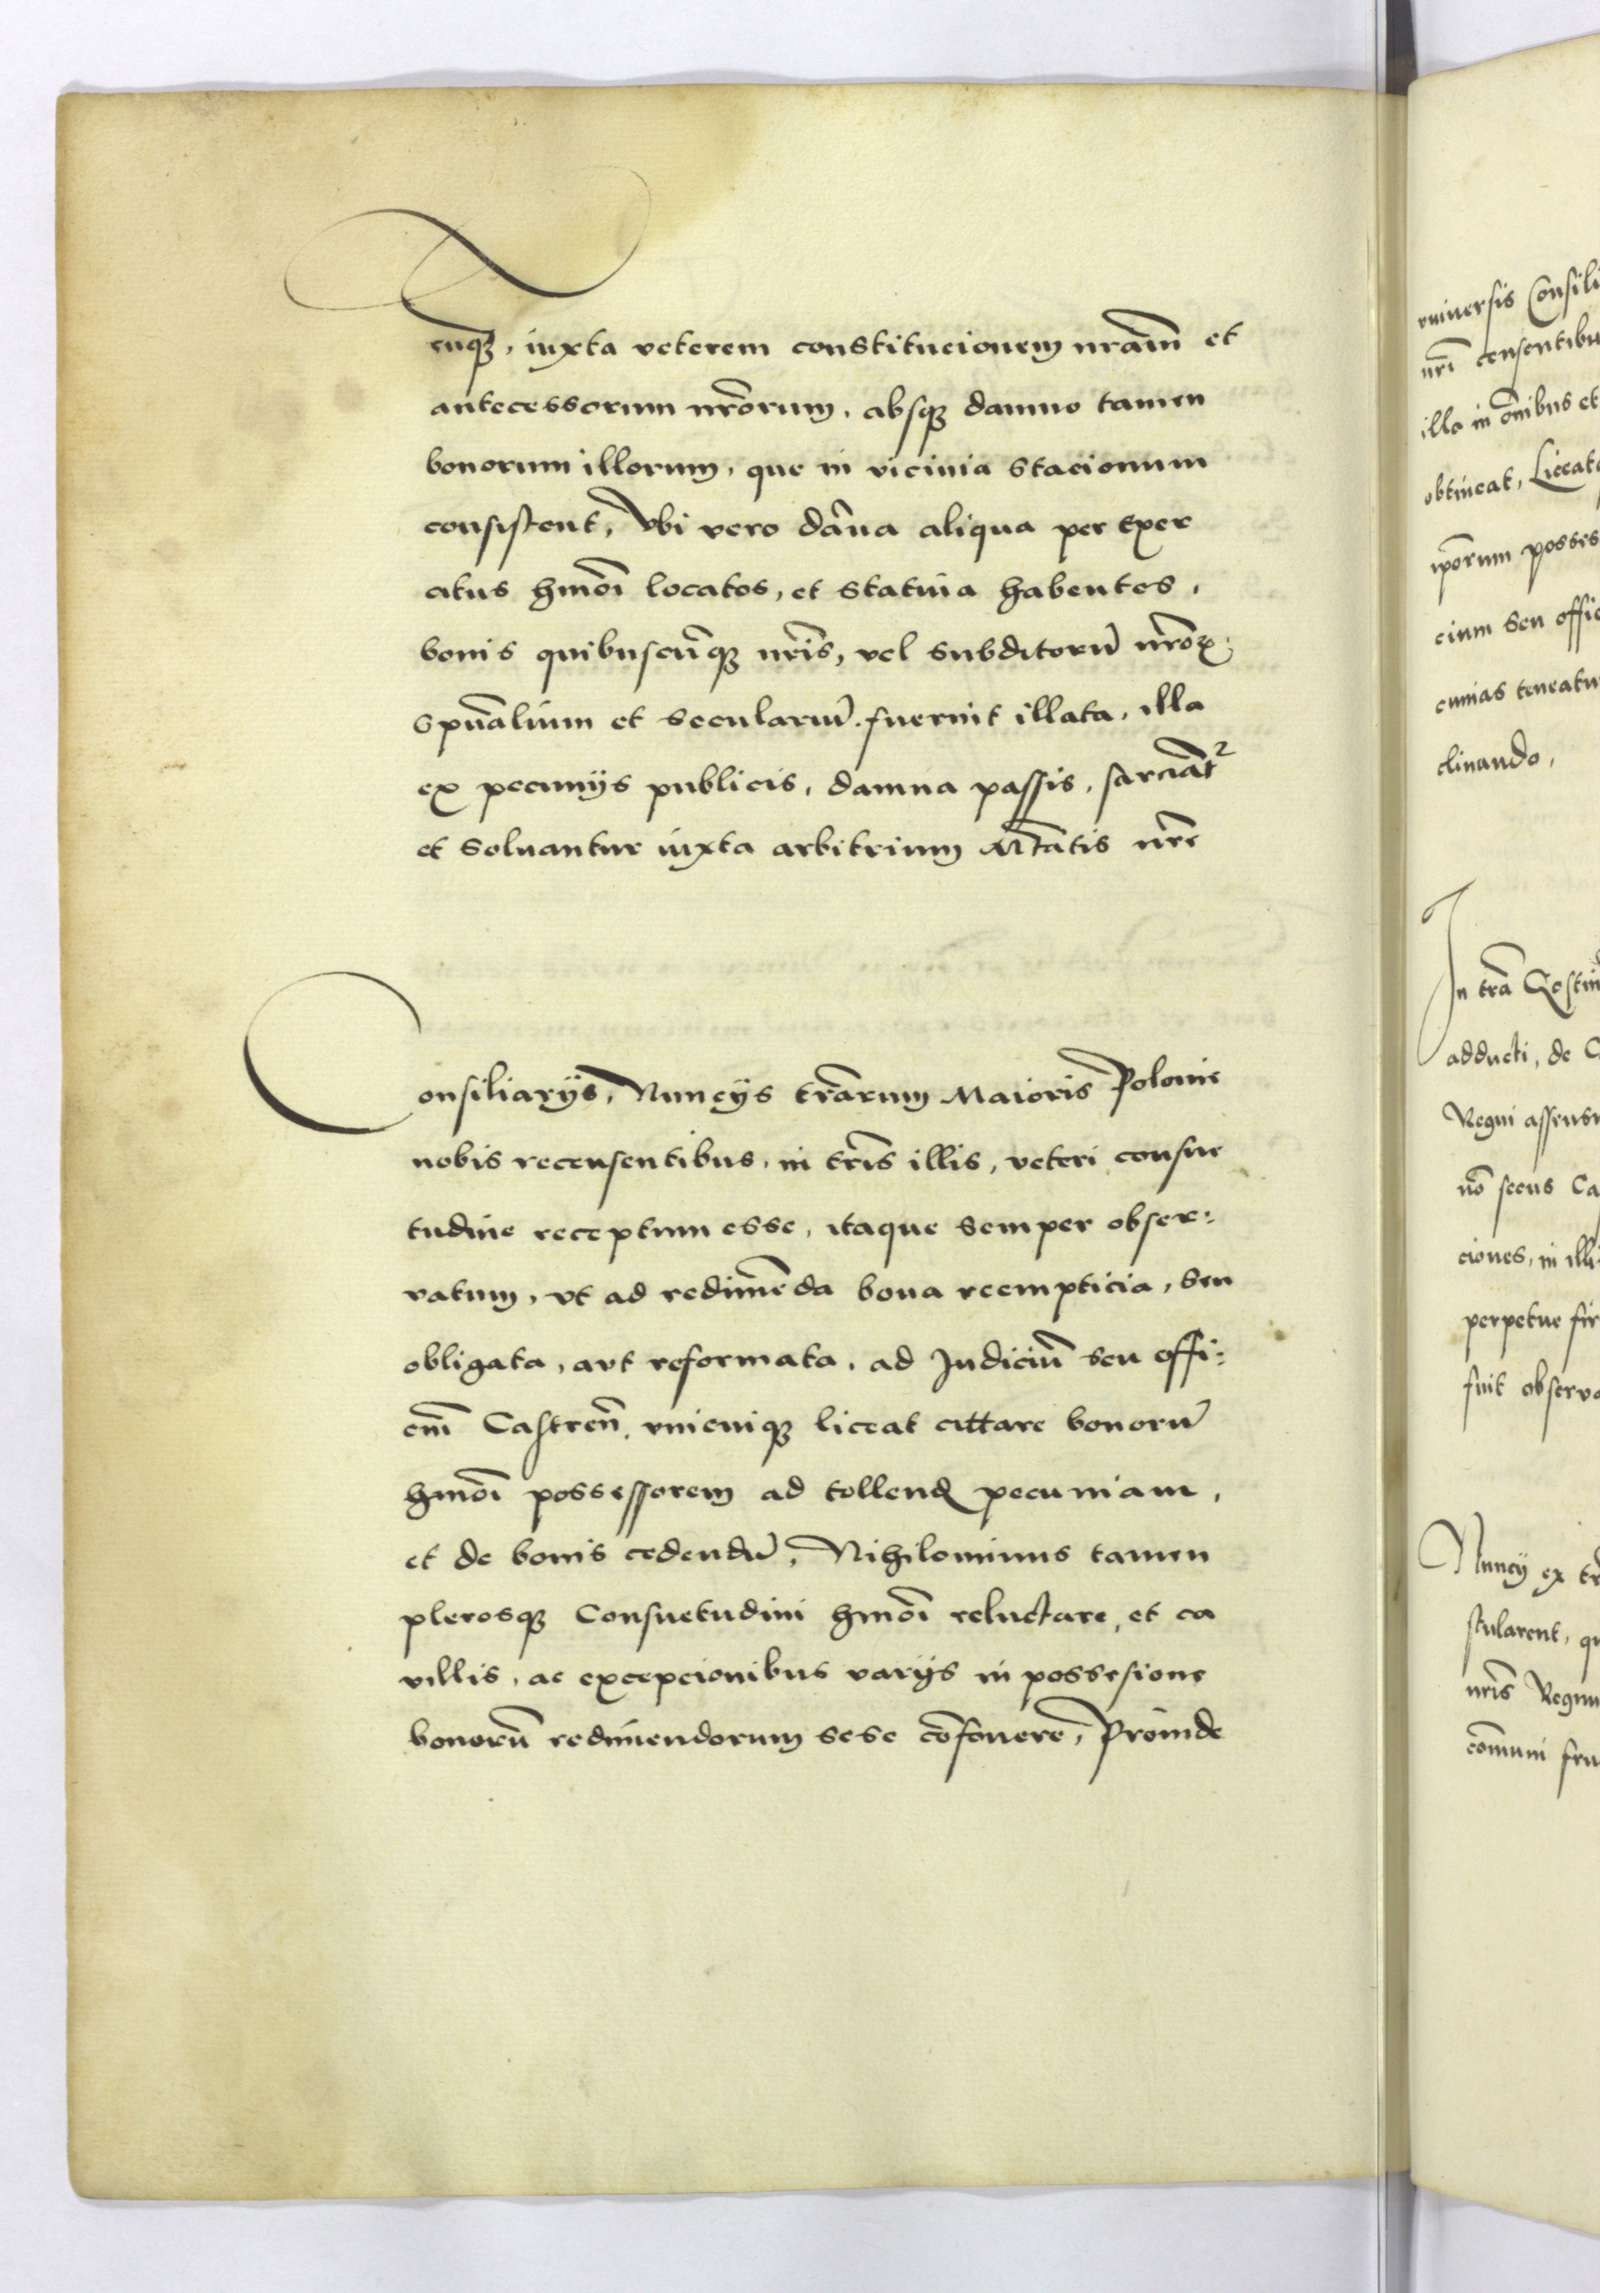 cuqz, iuxta veterem constitucionem nram̄ et
antecessorum nrōrum, absqz damno tamen
bonorum illorum, que in vicinia stacionum
consistent, Vbi vero dāna aliqua per exer
citus hmōi locatos, et statiua habentes,
bonis quibuscūqz nrīs, vel subditorū nrōꝝ.
Spūalium et seculariū. fuerint illata, illa
ex pecunijs publicis, damna passis, sarciāt²
et soluantur iuxta arbitrium Mtātis nrē
Consiliarijs, Nuncijs trārum Maioris Polonie
nobis recensentibus, in trīs illis, veteri consue
tudine receptum esse, itaque semper obser:
vatum, vt ad redimēda bona reempticia, seu
obligata, aut reformata, ad Judiciū seu offi:
ciū Castreñ, vnicuiqz liceat cittare bonorū
hmōi possessorem ad tollend pecuniam,
et de bonis cedendū, Nihilominus tamen
plerosqz Consuetudini hmōi reluctare, et ca
villis, ac excepcionibus varijs in possesione
bonorū redimendorum sese cōfouere, Proinde
vniuersis Consili
nrī censentibu
illa in oībus et
obtineat, Liceat
ipōrum posses
cium seu offic
cunias teneatu
clinando,
In trā
adducti, de C
Regni assensu
nō secus Ca
ciones, in illi
perpetue fir
fuit observa
Nuncij ex tr
stularent, qu
nrīs Regnu
cōmuni fru